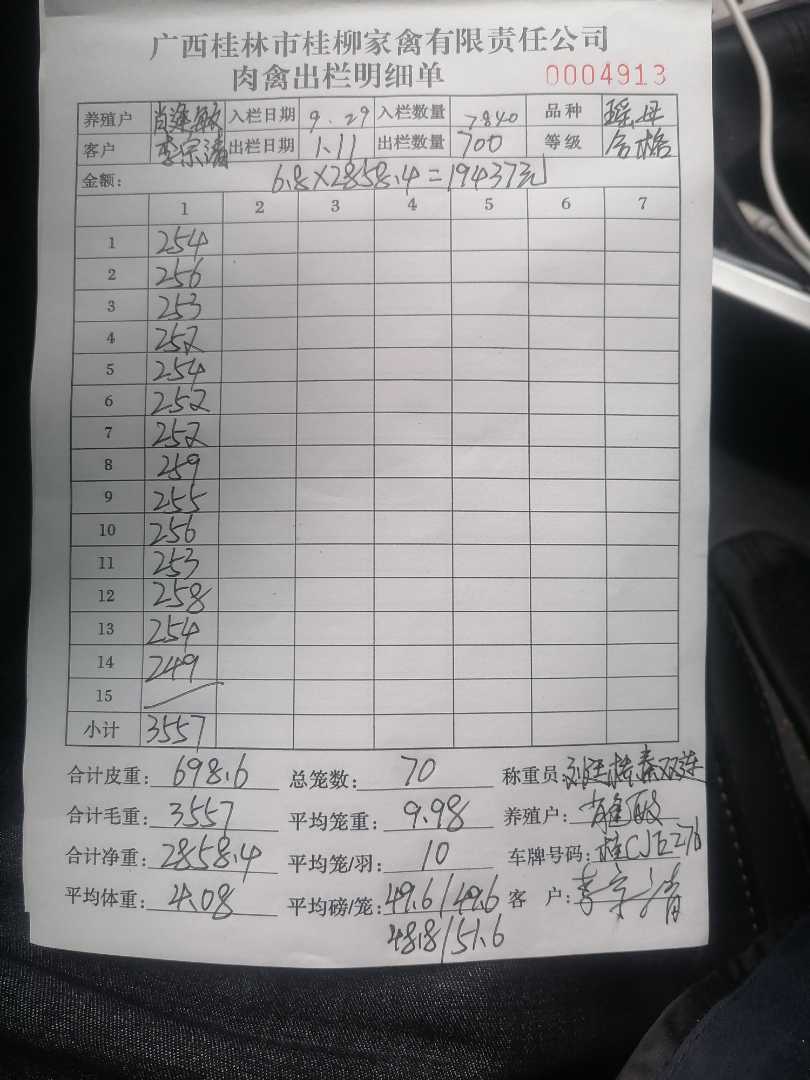 广西桂林市桂柳家禽有限责任公司
肉禽出栏明细单 0004913
养殖户 肖连敏 入栏日期 9.29 入栏数量 7840 品种 瑶母
客户 李宗清 出栏日期 1.11 出栏数量 700 等级 合格
金额: 6.8×2858.4=19437元
1 2 3 4 5 6 7
1 254
2 256
3 253
4 252
5 254
6 252
7 252
8 259
9 255
10 256
11 253
12 258
13 254
14 249
15
小计 3557
合计皮重: 698.6 总笼数: 70 称重员:
合计毛重: 3557 平均笼重: 9.98 养殖户:
合计净重: 2858.4 平均笼/羽: 10 车牌号码: 桂CJE276
平均体重: 4.08 平均磅/笼: 49.6/49.6 客户: 李宗清
48.8/51.6